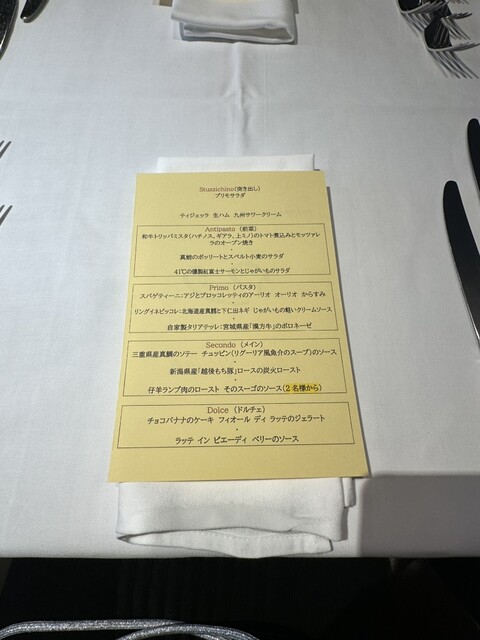 Stuzzichino(突き出し)
プリモサラダ
ティジェッラ 生ハム 九州サワークリーム
Antipasto (前菜)
和牛トリッパミスタ(ハチノス、ギアラ、上ミノ)のトマト煮込みとモッツァレ
ラのオーブン焼き
・
真蛸のボッリートとスペルト小麦のサラダ
・
41℃の燻製紅富士サーモンとじゃがいものサラダ
Primo (パスタ)
スパゲティーニ:アジとブロッコレッティのアーリオ オーリオ からすみ
・
リングイネピッコレ:北海道産真鱈と下仁田ネギ じゃがいもの軽いクリームソース
・
自家製タリアテッレ:宮城県産「漢方牛」のボロネーゼ
Secondo (メイン)
三重県産真鯛のソテー チュッピン(リグーリア風魚介のスープ)のソース
・
新潟県産「越後もち豚」ロースの炭火ロースト
・
仔羊ランプ肉のロースト そのスーゴのソース(2名様から)
Dolce (ドルチェ)
チョコバナナのケーキ フィオール ディ ラッテのジェラート
・
ラッテ イン ピエーディ ベリーのソース